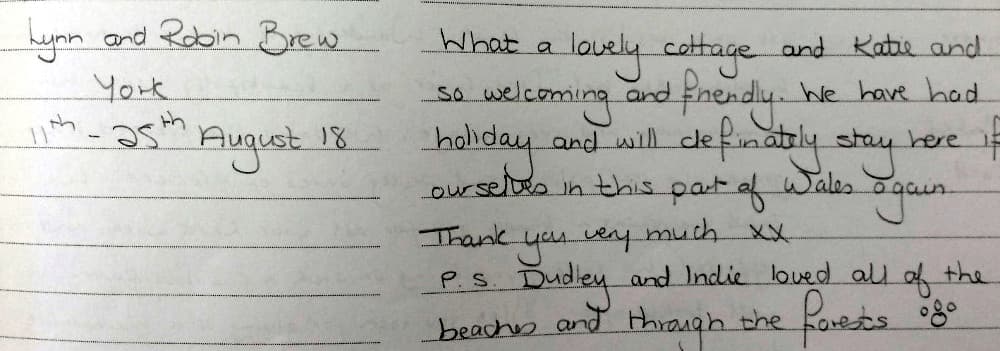 Lynn and Robin Brew
York
11th - 25th August 18
What a lovely cottage and Katie and
so welcoming and friendly. We have had
holiday and will definately stay here if
ourselves in this part of Wales again.
Thank you very much xx
P.S. Dudley and Indie loved all of the
beaches and through the forests